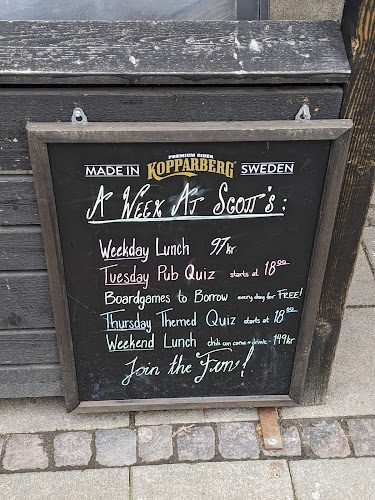 PREMIUM CIDER
MADE IN KOPPARBERG SWEDEN
A Week At Scott's:
Weekday Lunch 97kr
Tuesday Pub Quiz starts at 18⁰⁰
Boardgames to Borrow every day for FREE!
Thursday Themed Quiz starts at 18⁰⁰
Weekend Lunch 149kr
Join the Fun!